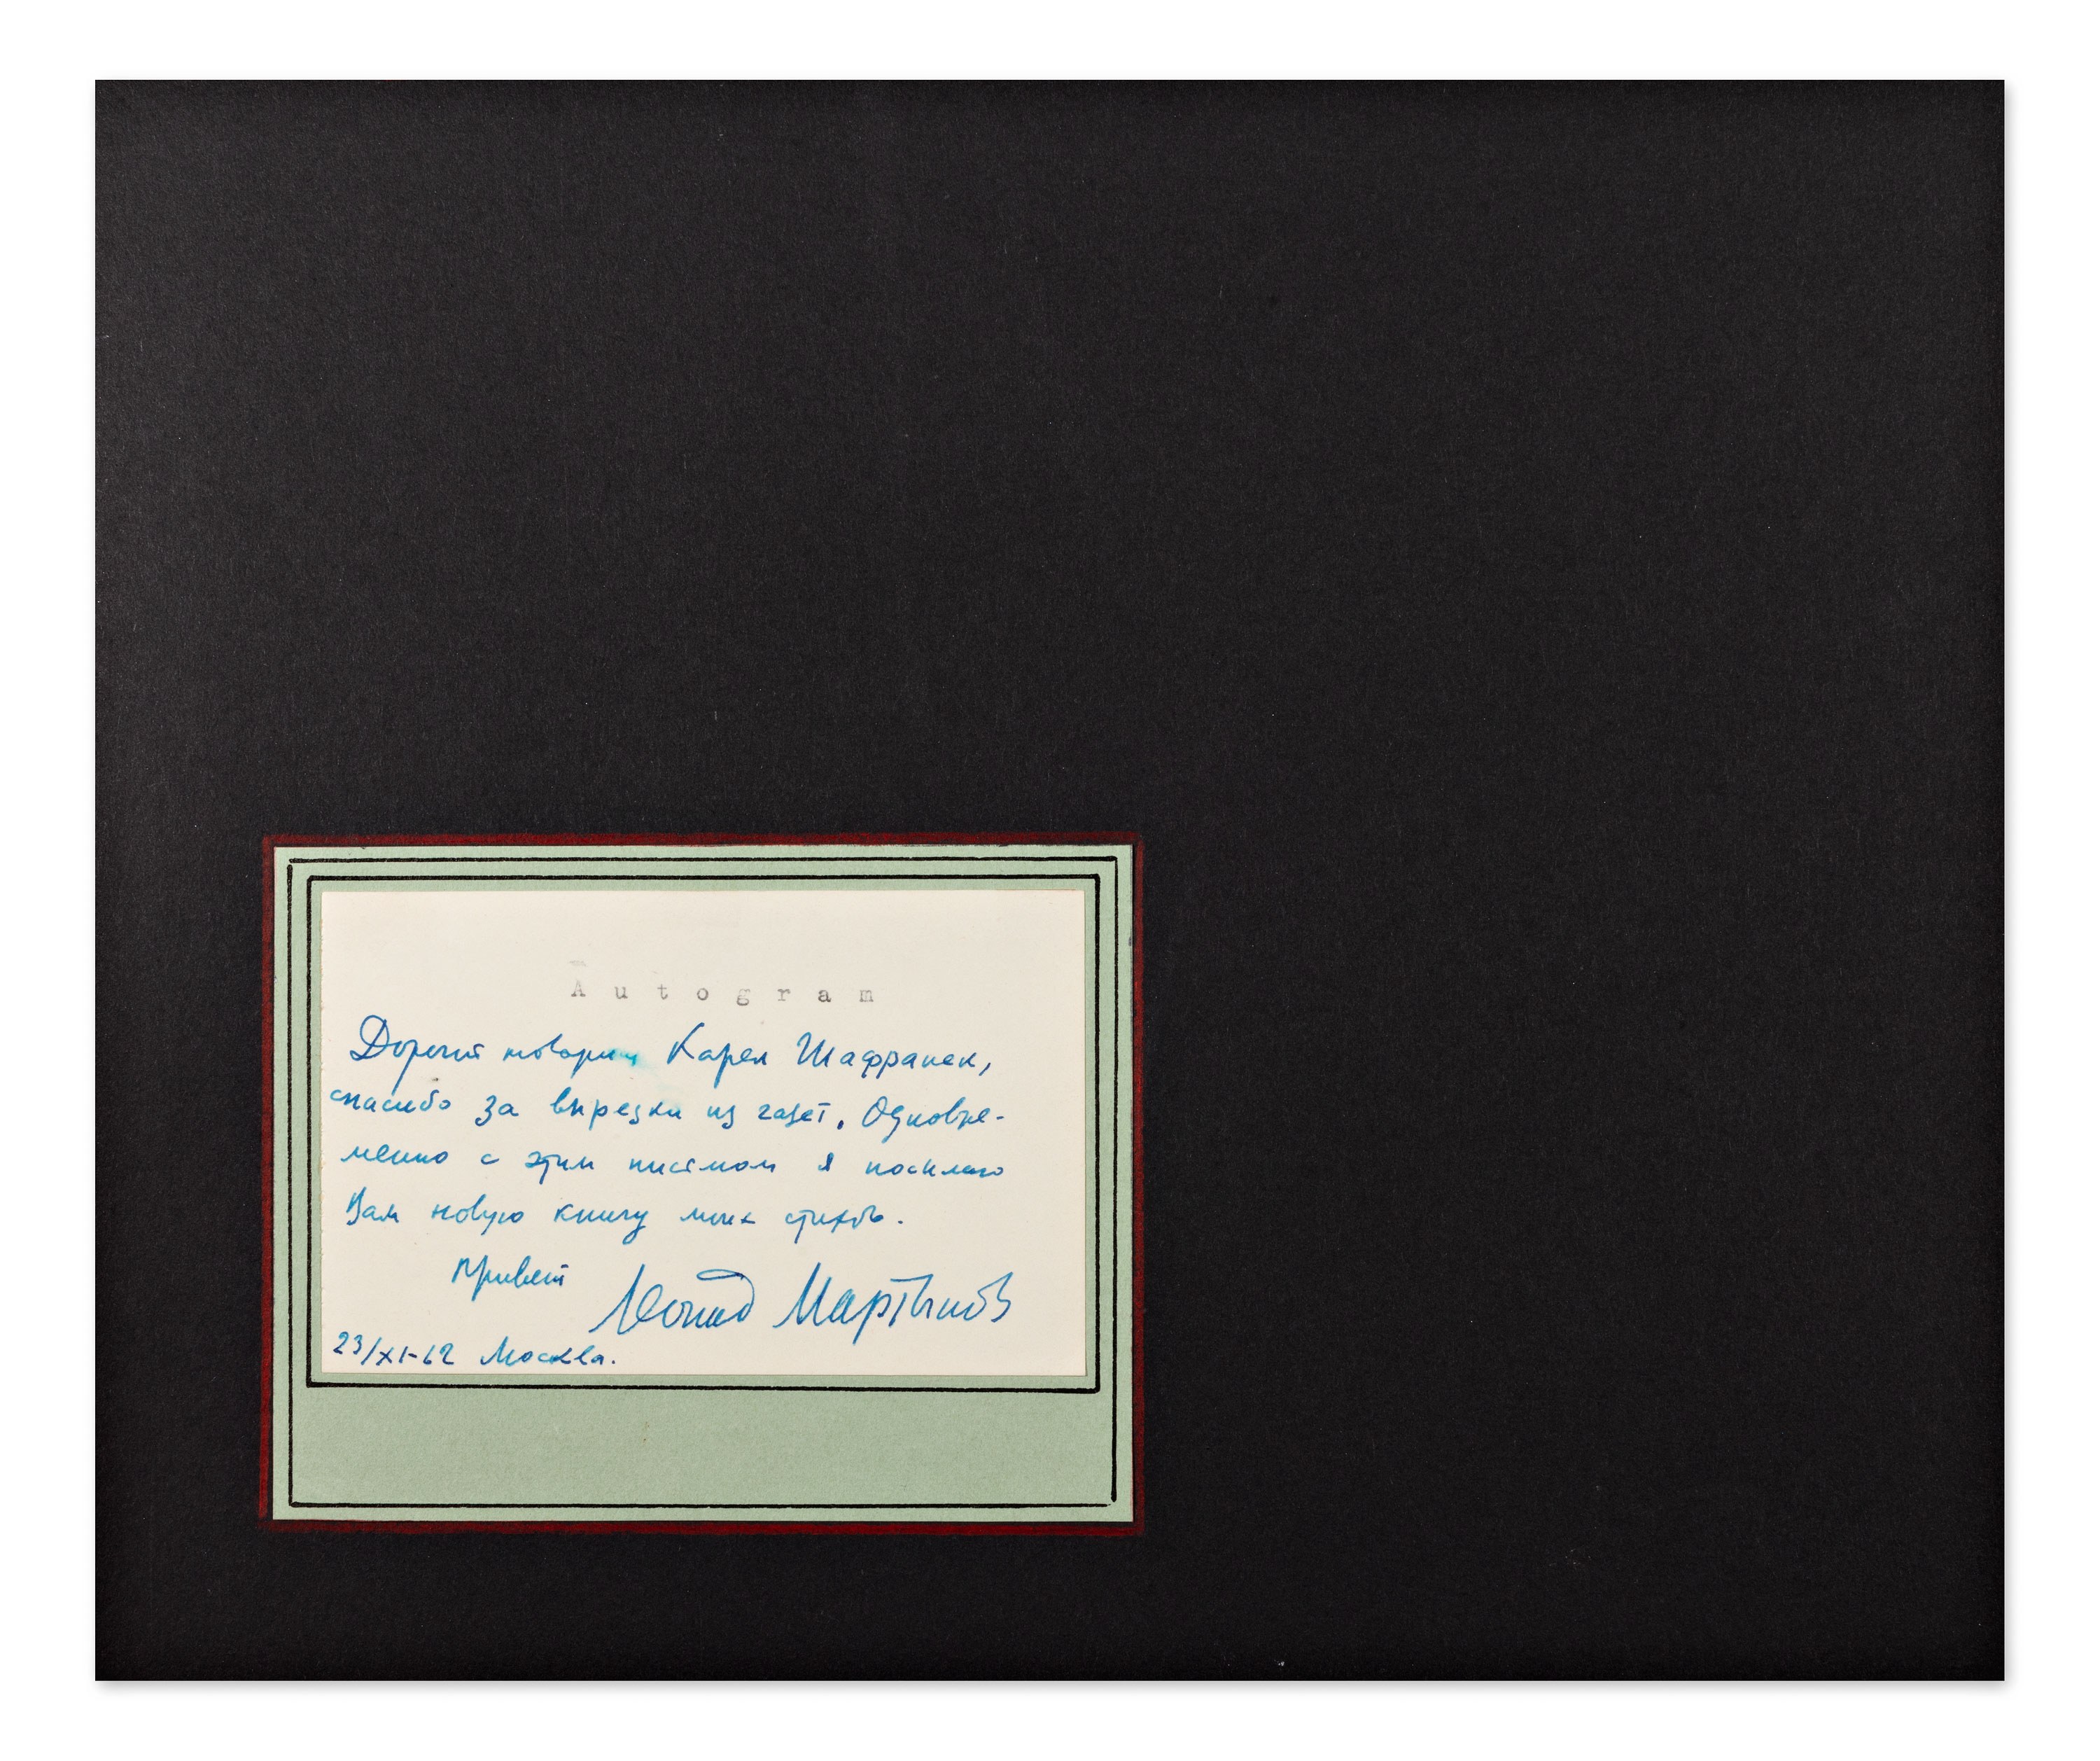 Autogram
Дорогой товарищ Карел Шафранек,
спасибо за вырезки из газет. Одновре-
менно с этим письмом я посылаю
Вам новую книгу моих стихов.
Привет Леонид Мартынов
23/XI-62 Москва.